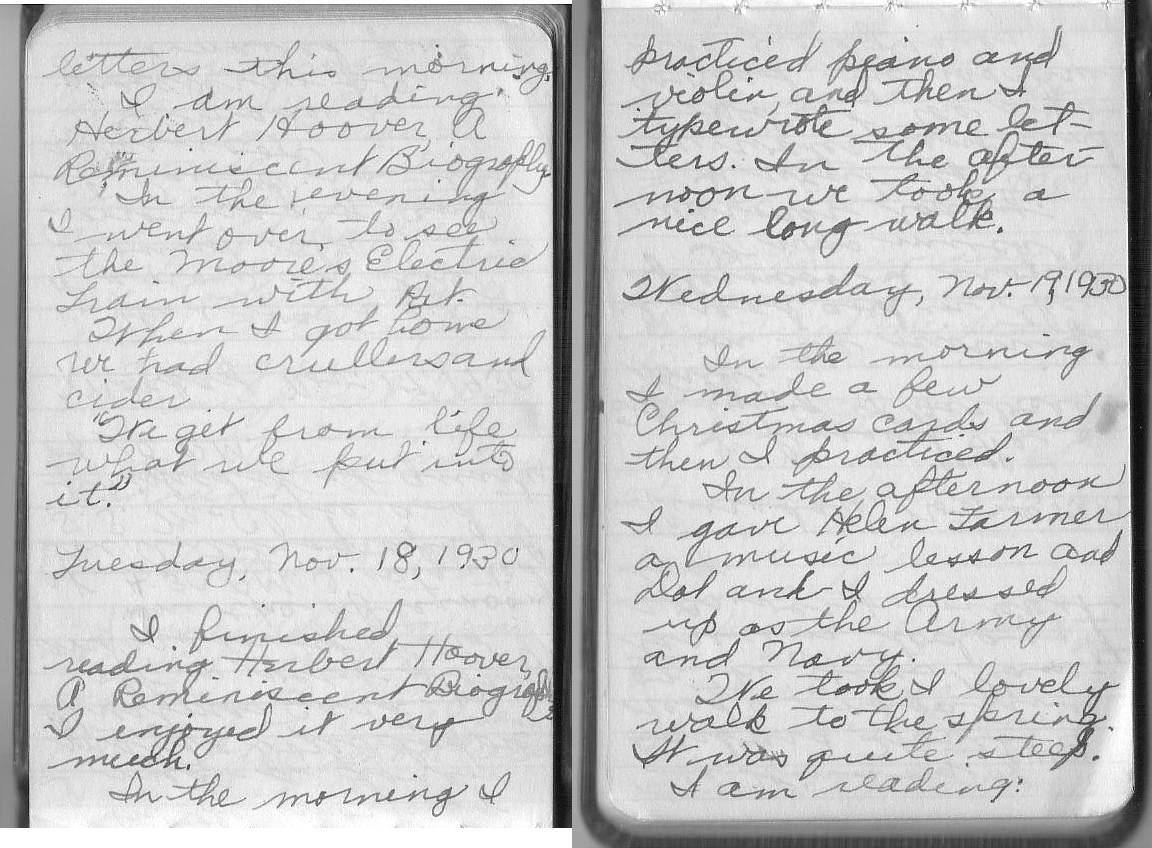 letters this morning.
I am reading
Herbert Hoover, A
Reminiscent Biography.
In the evening
I went over to see
the Moore's Electric
Train with Art.
When I got home
we had crullers and
cider
"We get from life
what we put into
it."
Tuesday, Nov. 18, 1930
I finished
reading Herbert Hoover,
A Reminiscent Biography
I enjoyed it very
much.
In the morning I
practiced piano and
violin, and then I
typewrote some let-
ters. In the after
noon we took a
nice long walk.
Wednesday, Nov. 19, 1930
In the morning
I made a few
Christmas cards and
then I practiced.
In the afternoon
I gave Helen Farmer
a music lesson and
Dot and I dressed
up as the Army
and Navy.
We took I lovely
walk to the spring.
It was quite steep.
I am reading: